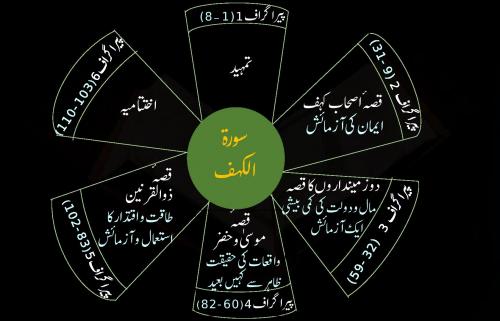 سورۃ
الکہف
پیراگراف 1 (1-8)
تمہید
پیراگراف 2 (9-31)
قصہٗ اصحاب کہف
ایمان کی آزمائش
پیراگراف 3 (32-59)
دو زمینداروں کا قصہ
مال و دولت کی کمی بیشی
ایک آزمائش
قصہٗ
موسیٰ و خضر
واقعات کی حقیقت
ظاہر سے کہیں بعید
پیراگراف 4 (60-82)
قصہٗ
ذوالقرنین
طاقت و اقتدار کا
استعمال و آزمائش
پیراگراف 5 (83-102)
اختتامیہ
پیراگراف 6 (103-110)